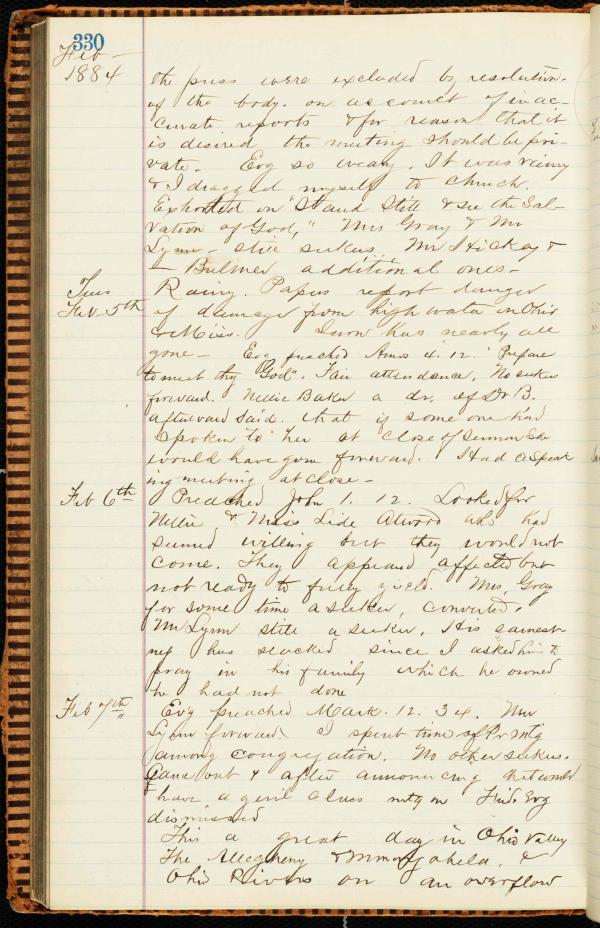 330
Feb —
1884
the press were excluded by resolution
of the body. on account of inac-
curate reports & for reason that it
is desired the meeting should be pri-
vate. Evg so weary. It was rainy
& I dragged myself to church.
Exhorted on "Stand Still & see the Sal-
vation of God," Mrs Gray & Mr
Lynn – still seekers. Mr Hickey &
– Bulmer additional ones –
Tues
Feb. 5th
Rainy. Papers report danger
of damage from high water in Ohio
& Miss. Snow has nearly all
gone – Evg preached Amos 4. 12. "Prepare
to meet thy God". Fair attendance, No seeker
forward. Nellie Baker a dr. of Dr B.
afterward said. that if some one had
spoken to her at close of sermon she
would have gone forward. Had a speak
ing meeting at close –
Feb 6th
Preached John 1. 12. Looked for
Nellie & Miss Lide Atwood who had
seemed willing but they would not
come. They appeared affected but
not ready to fully yield. Mrs. Gray
for some time a seeker, converted.
Mr Lynn still a seeker. His earnest-
ness has slacked since I asked him to
pray in his family which he owned
he had not done
Feb 7th
Evg preached Mark. 12. 34. Mr
Lynn forward I spent time of Pr mtg
among congregation. No other seekers.
Gave out & after announcing that would
have a genl class mtg on Frid. Evg
dismissed
This a great day in Ohio Valley
The Allegheny & Monongahela, &
Ohio Rivers on an overflow